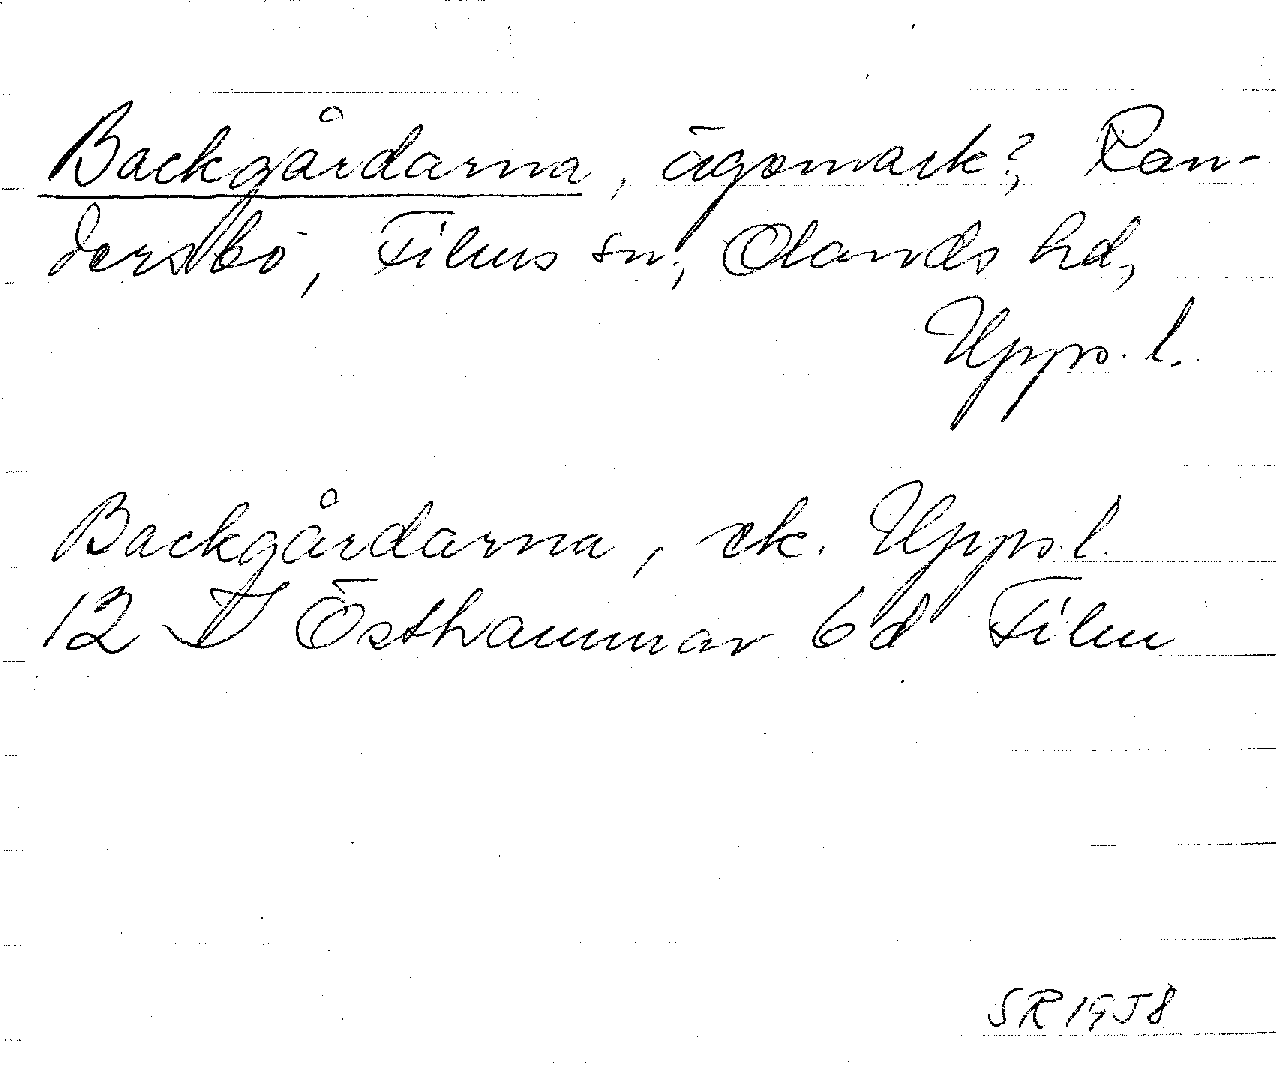 Backgårdarna, ägomark?, Ran-
dersbo, Films sn, Olands hd,
Upps. l.
Backgårdarna, ek. Upps. l.
12 I Östhammar 6d Film
SR 1958